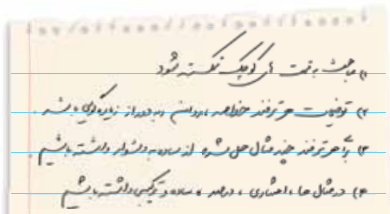 ۱) مباحث به قسمت های کوچک شکسته شود
۲) توضیحات هر ترفند خلاصه، روان و به دور از زیاده‌گویی باشد.
۳) برای هر ترفند چند مثال حل شده از ساده به دشوار داشته باشیم
۴) در مثال ها، اعشاری، درصد، ساده و ترکیبی داشته باشیم